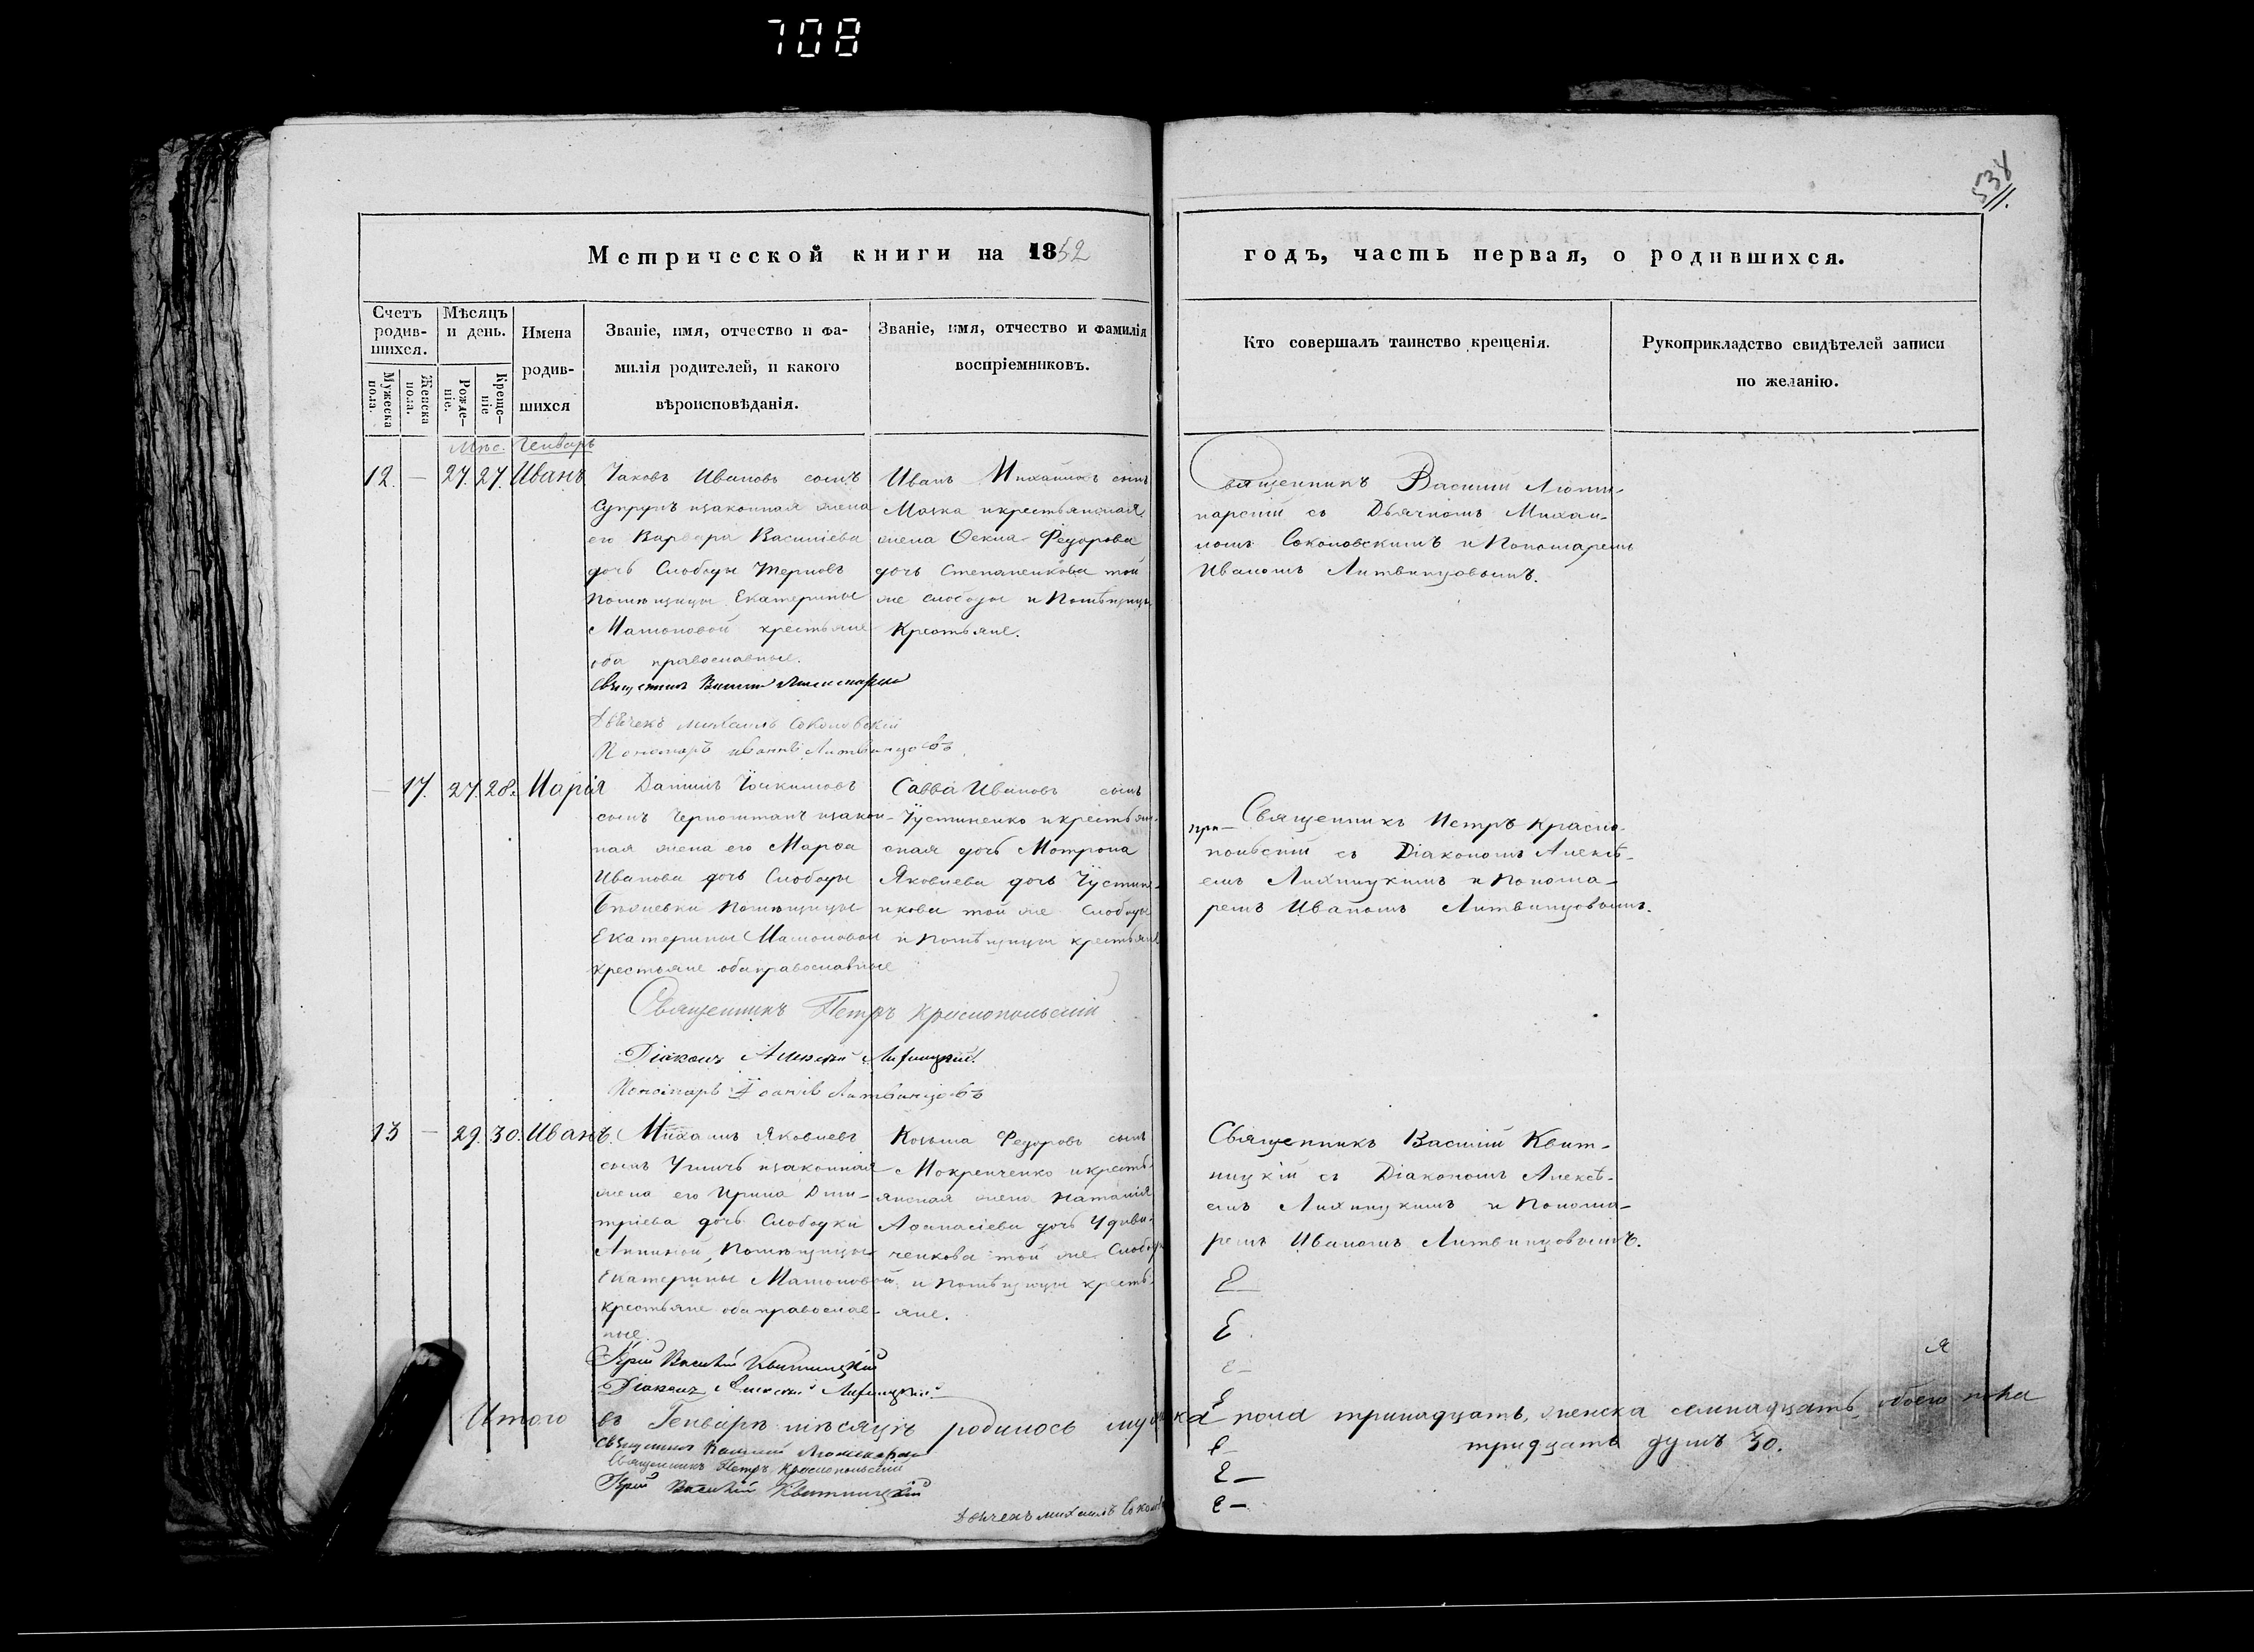 708
538
Метрической книги на 1852
годъ, часть первая, о родившихся.
Счетъ родившихся.
Мужеска пола.
Женска пола.
Мѣсяцъ и день.
Рожденіе.
Крещеніе
Имена родившихся
Званіе, имя, отчество и фамилія родителей, и какого вѣроисповѣданія.
Званіе, имя, отчество и фамилія воспріемниковъ.
Кто совершалъ таинство крещенія.
Рукоприкладство свидѣтелей записи по желанію.
Мѣс. Генварь
12. — 27. 27. Иванъ
Іаковъ Ивановъ сынъ
Супрунъ изаконная жена
его Варвара Василіева
дочь Слободы Терновъ
помѣщицы Екатерины
Матоновой крестьяне
оба православные.
Священникъ Василій
Дьячекъ Михаилъ Соколовскій
Пономарь Іоаннъ Литвинцовъ
Иванъ Михайловъ сынъ
икрестьянская
жена Фекла Федорова
дочь Степаненкова той
же слободы и Помѣщицы
Крестьяне.
Священникъ Василій
съ Дьячкомъ Михаи-
ломъ Соколовскимъ и Пономаремъ
Иваномъ Литвинцовымъ.
— 17. 27. 28. Марія
Даніилъ Іоакимовъ
сынъ Черноштанъ изакон-
ная жена его Марѳа
Иванова дочь Слободы
помѣщицы
Екатерины Матоновой
крестьяне оба православные
Священникъ Петръ Краснопольскій
Діаконъ Алексѣй Лихницкій
Пономарь Іоаннъ Литвинцовъ
Савва Ивановъ сынъ
Іустиненко икрестьян-
ская дочь Мотрона
Яковлева дочь Іустине-
нкова той же Слободы
и помѣщицы крестьяне
Священникъ Петръ Красно-
польскій съ Діакономъ Алексѣ-
емъ Лихницкимъ и Понома-
ремъ Иваномъ Литвинцовымъ.
13 — 29. 30. Иванъ.
Михаилъ Яковлевъ
сынъ изаконная
жена его Ирина Дми-
тріева дочь Слободки
Аниной, помѣщицы
Екатерины Матоновой
крестьяне оба православ-
ные.
Іерей Василій Квитницкій
Діаконъ Алексѣй Лихницкій
Козьма Федоровъ сынъ
Мокренченко икресть-
янская жена Наталія
Аѳанасіева дочь Удови-
ченкова той же Слободы
и помѣщицы кресть-
яне.
Священникъ Василій Квит-
ницкій съ Діакономъ Алексѣ-
емъ Лихницкимъ и Понома-
ремъ Иваномъ Литвинцовымъ.
Итого въ Генварѣ мѣсяцѣ родилось мужска пола тринадцать, женска семнадцать, обоего пола
тридцать душъ 30.
Священникъ Василій
Священникъ Петръ Краснопольскій
Іерей Василій Квитницкій
Дьячекъ Михаилъ